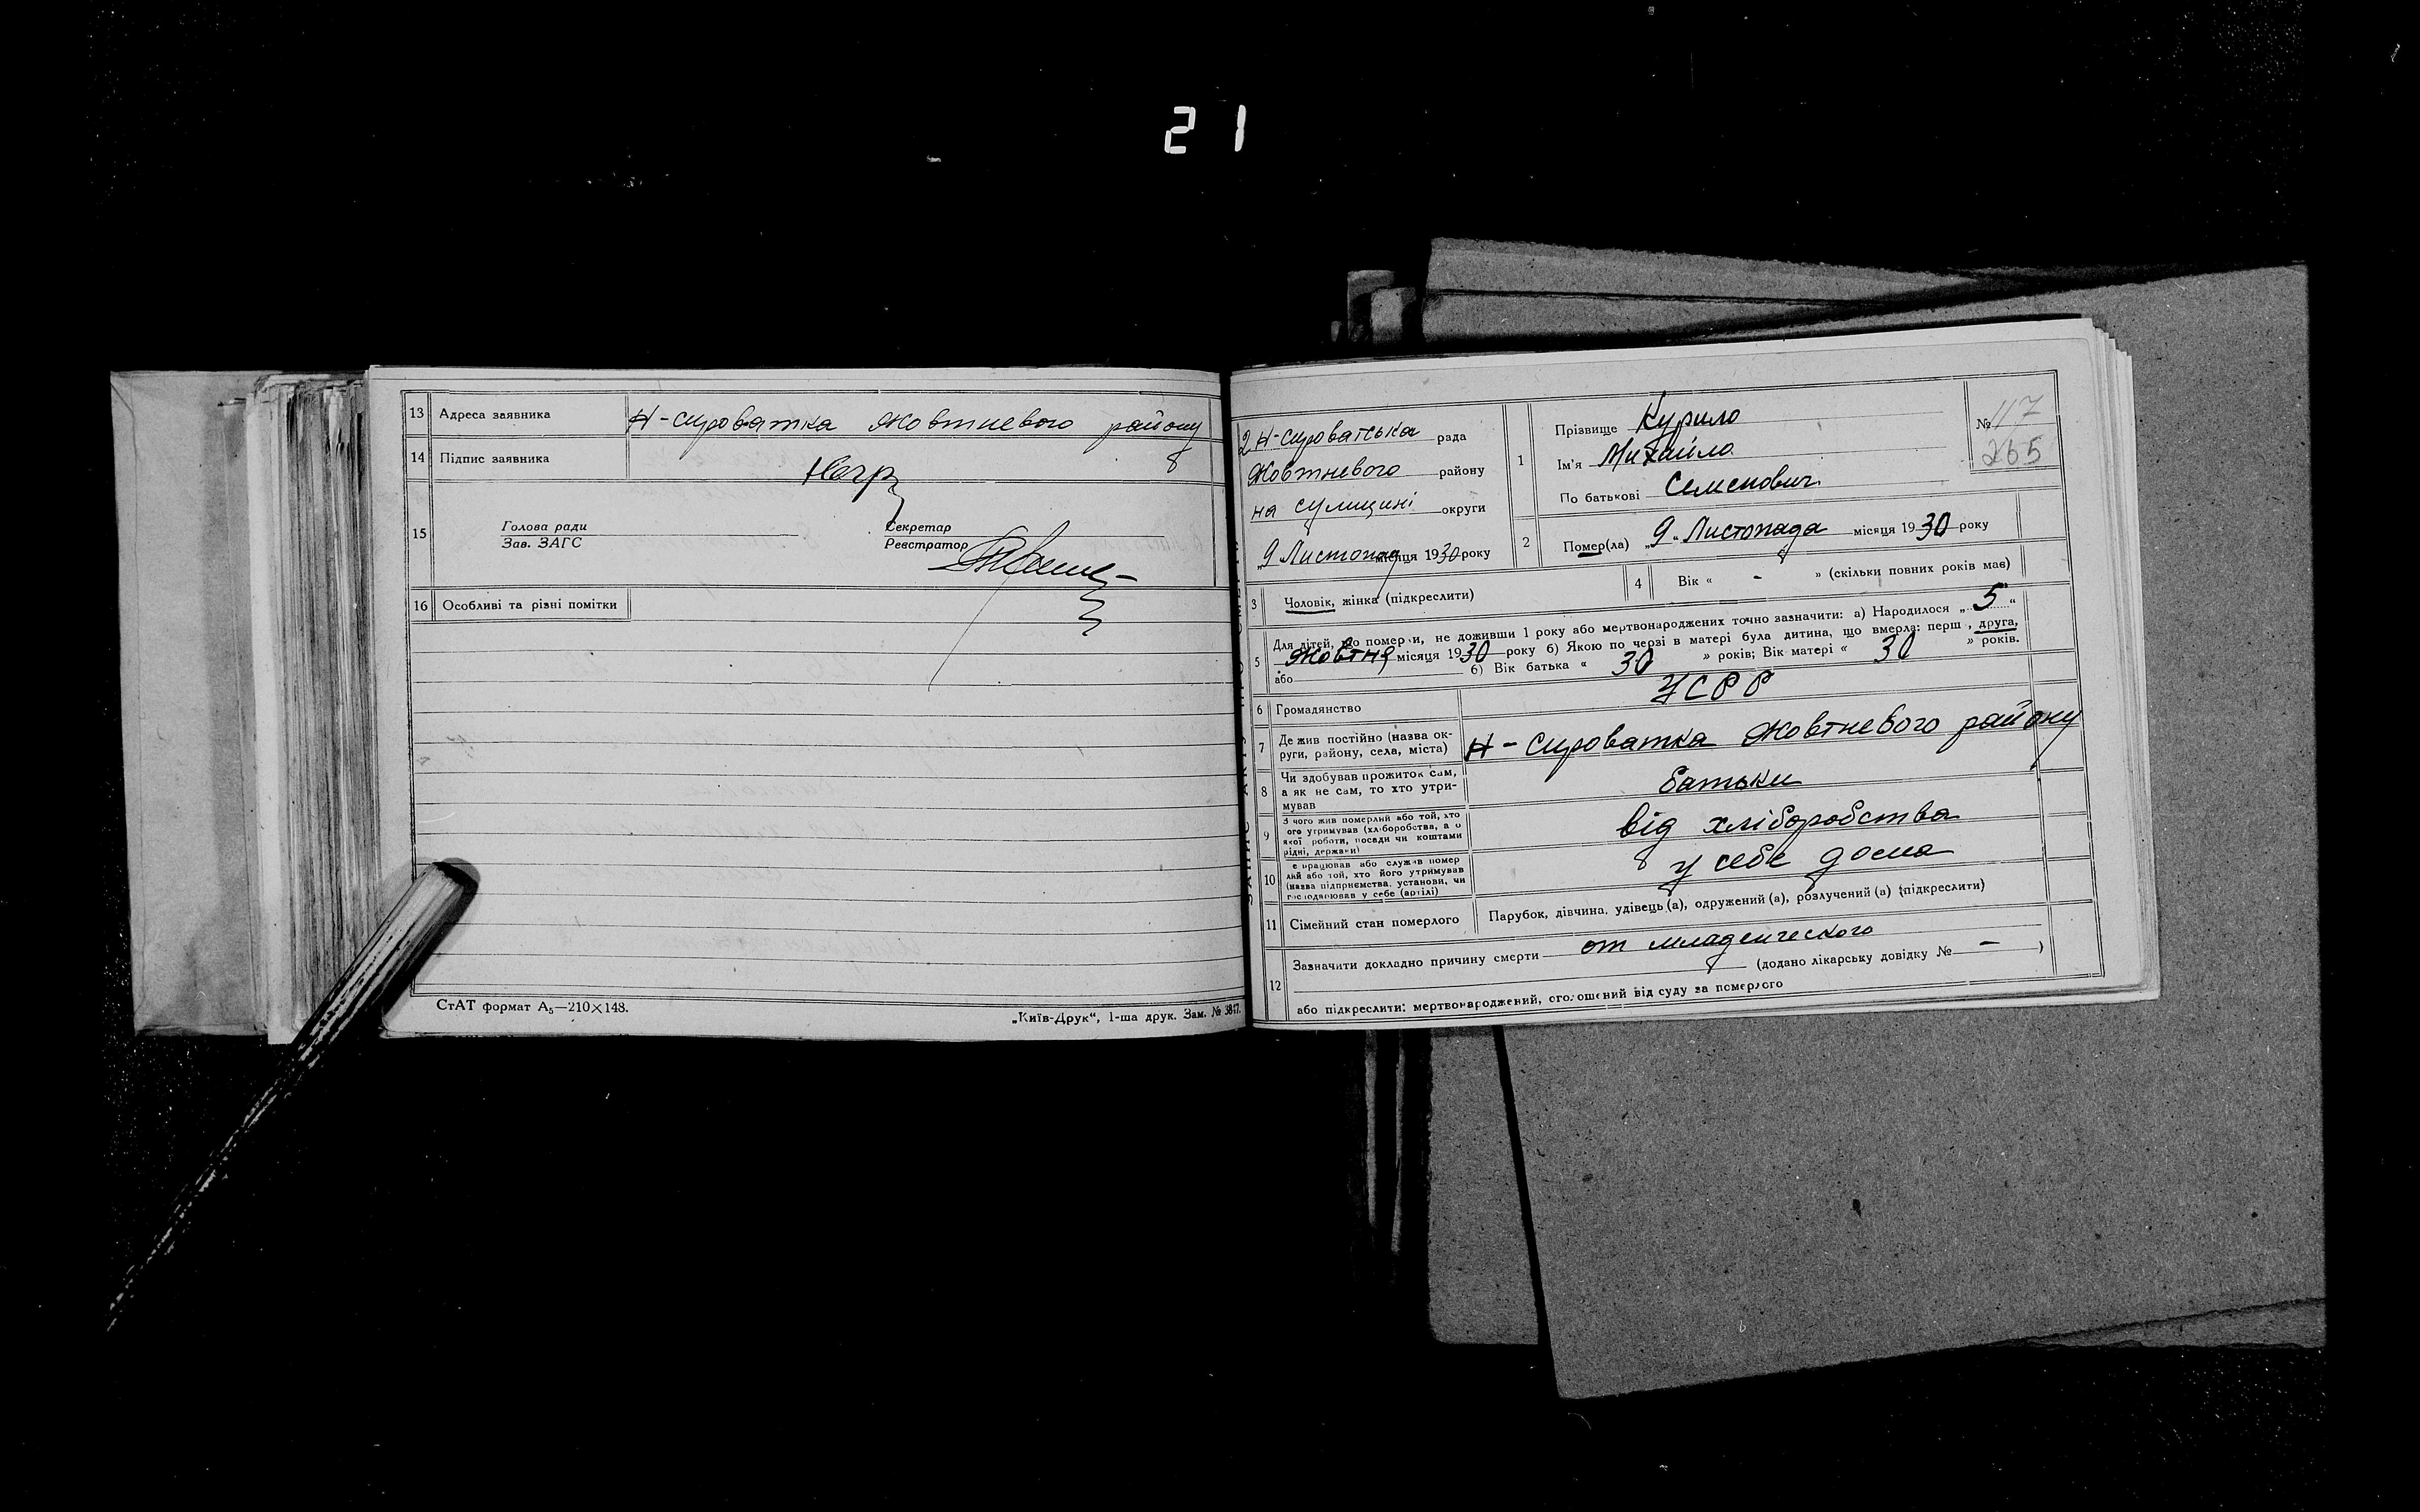 21
13 Адреса заявника Н-Сироватка Жовтневого району
14 Підпис заявника
15 Голова ради Секретар
Зав. ЗАГС Реєстратор
16 Особливі та різні помітки
СтАТ формат А₅—210×148.
„Київ-Друк“, 1-ша друк. Зам. № 3817.
2 Н-Сироватська рада
Жовтневого району
на Сумщині округи
„9 Листопад місяця 1930 року
1 Прізвище Курило
Ім'я Михайло
По батькові Семенович
№ 117
265
2 Помер(ла) „9“ Листопада місяця 1930 року
3 Чоловік, жінка (підкреслити)
4 Вік « - » (скільки повних років мав)
5 Для дітей, що померли, не доживши 1 року або мертвонароджених точно зазначити: а) Народилося „5“
Жовтня місяця 1930 року б) Якою по черзі в матері була дитина, що вмерла: перш , друга,
або б) Вік батька « 30 » років; Вік матері « 30 » років.
6 Громадянство УСРР
7 Де жив постійно (назва ок-
руги, району, села, міста) Н-Сироватка Жовтневого району
8 Чи здобував прожиток сам,
а як не сам, то хто утри-
мував батьки
9 З чого жив померлий або той, хто
ого утримував (хліборобства, а о
якої роботи, посади чи коштами
рідні, держави) від хліборобства
10 е працював або служив помер
лий або той, хто його утримував
(назва підприємства, установи, чи
господарював у себе (артілі) у себе дома
11 Сімейний стан померлого Парубок, дівчина, удівець (а), одружений (а), розлучений (а) (підкреслити)
12 Зазначити докладно причину смерти от младенческого
(додано лікарську довідку № — )
або підкреслити: мертвонароджений, оголошений від суду за померлого